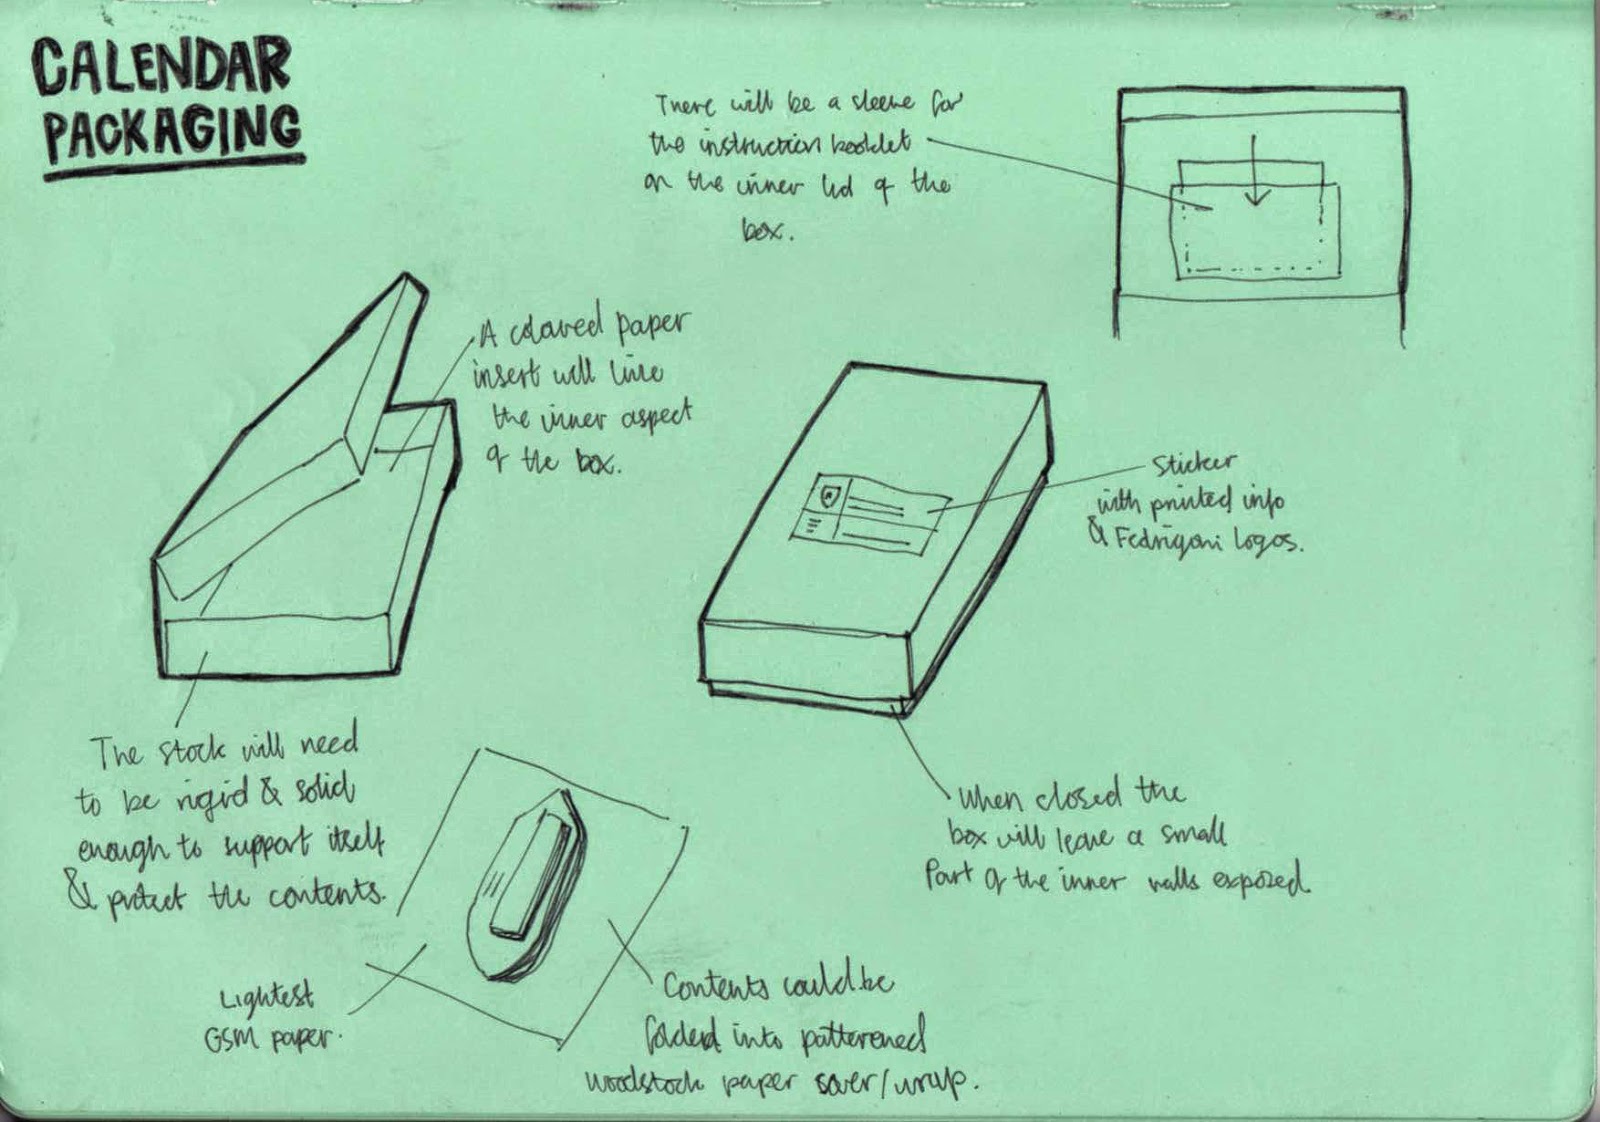 CALENDAR
PACKAGING
There will be a sleeve for
the instruction booklet
on the inner lid of the
box.
A coloured paper
insert will line
the inner aspect
of the box.
Sticker
with printed info
& Fedrigoni logos.
The stock will need
to be rigid & solid
enough to support itself
& protect the contents.
When closed the
box will leave a small
Part of the inner walls exposed.
Lightest
GSM paper.
Contents could be
folded into patterened
woodstock paper saver/wrap.